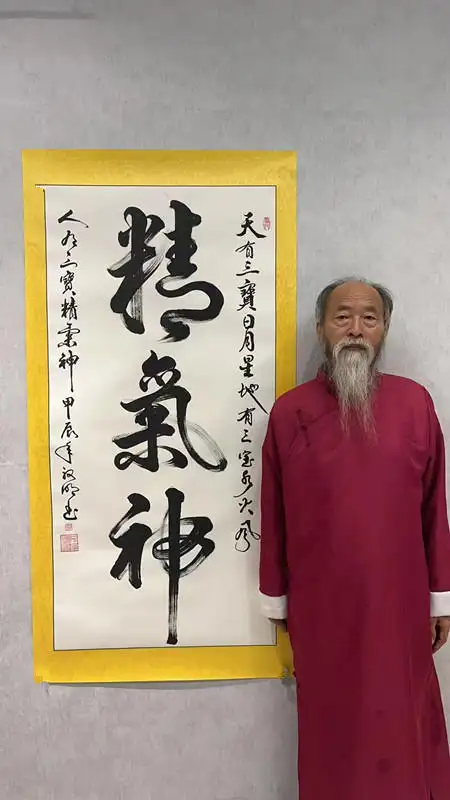 天有三寶日月星地有三宝水火风
精氣神
人有三寶精氣神 甲辰年